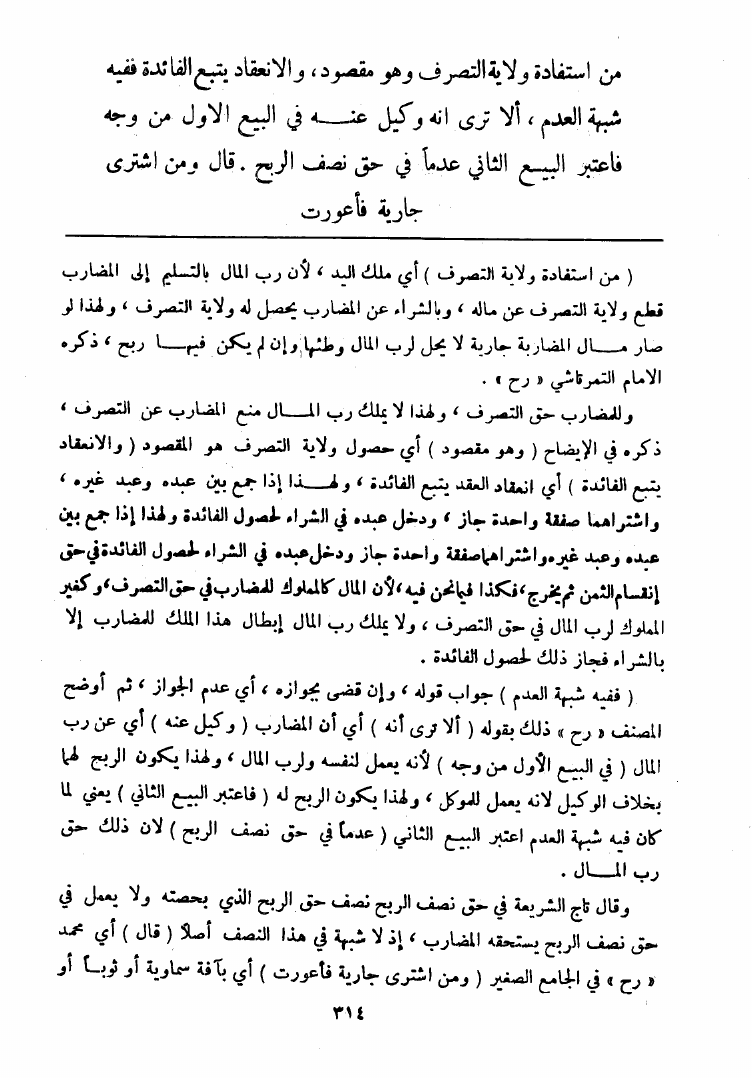 من استفادة ولاية التصرف وهو مقصود، والانعقاد يتبع الفائدة ففيه
شبهة العدم ، ألا ترى انه وكيل عنـــه في البيع الاول من وجه
فاعتبر البيـع الثاني عدماً في حق نصف الربح . قال ومن اشترى
جارية فأعورت
( من استفادة ولاية التصرف ) أي ملك اليد ، لأن رب المال بالتسليم إلى المضارب
قطع ولاية التصرف عن ماله ، وبالشراء عن المضارب يحصل له ولاية التصرف ، ولهذا لو
صار مـــال المضاربة جارية لا يحل لرب المال وطئها وإن لم يكن فيهـــا ربح ، ذكره
الامام التمرتاشي « رح » .
وللمضارب حق التصرف ، ولهذا لا يملك رب المـــال منع المضارب عن التصرف ،
ذكره في الإيضاح ( وهو مقصود ) أي حصول ولاية التصرف هو المقصود ( والانعقاد
يتبع الفائدة ) أي انعقاد العقد يتبع الفائدة ، ولهـــذا إذا جمع بين عبده وعبد غيره ،
واشتراهما صفقة واحدة جاز ، ودخل عبده في الشراء لحصول الفائدة ولهذا إذا جمع بين
عبده وعبد غيره واشتراهما صفقة واحدة جاز ودخل عبده في الشراء لحصول الفائدة في حق
إنقسام الثمن ثم يخرج ، فكذا فيما نحن فيه ، لأن المال كالمملوك للمضارب في حق التصرف ، وكغير
المملوك لرب المال في حق التصرف ، ولا يملك رب المال إبطال هذا الملك للمضارب إلا
بالشراء فجاز ذلك لحصول الفائدة .
( ففيه شبهة العدم ) جواب قوله ، وإن قضى بجوازه ، أي عدم الجواز ، ثم أوضح
المصنف « رح » ذلك بقوله ( ألا ترى أنه ) أي أن المضارب ( وكيل عنه ) أي عن رب
المال ( في البيع الأول من وجه ) لأنه يعمل لنفسه ولرب المال ، ولهذا يكون الربح لهما
بخلاف الوكيل لانه يعمل للموكل ، ولهذا يكون الربح له ( فاعتبر البيع الثاني ) يعني لما
كان فيه شبهة العدم اعتبر البيع الثاني ( عدماً في حق نصف الربح ) لان ذلك حق
رب المـــال .
وقال تاج الشريعة في حق نصف الربح نصف حق الربح الذي بحصته ولا يعمل في
حق نصف الربح يستحقه المضارب ، إذ لا شبهة في هذا النصف أصلاً ( قال ) أي محمد
« رح » في الجامع الصغير ( ومن اشترى جارية فأعورت ) أي بآفة سماوية أو ثوبـاً أو
٣١٤